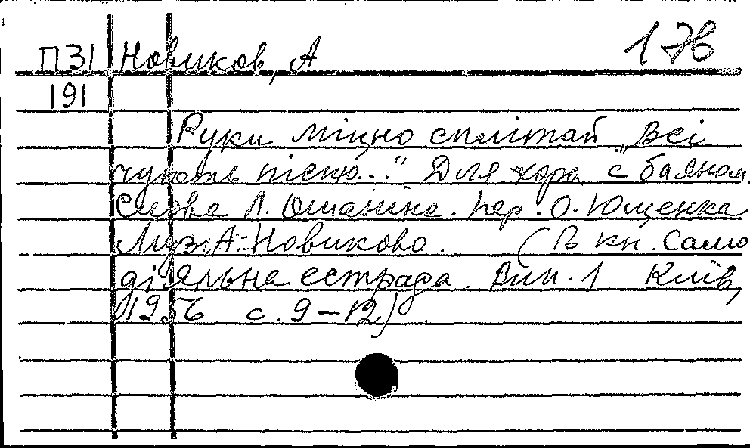 ПЗ1 Новиков, А 1 хв
191
Руки міцно сплітай "Всі
чують пісню.." Для хора с баяном.
Слова Л. Ошаніна. Пер. О. Ющенка
Муз. А. Новикова. (В кн. Само
діяльна естрада. Вип. 1 Київ,
1956 с. 9-12)